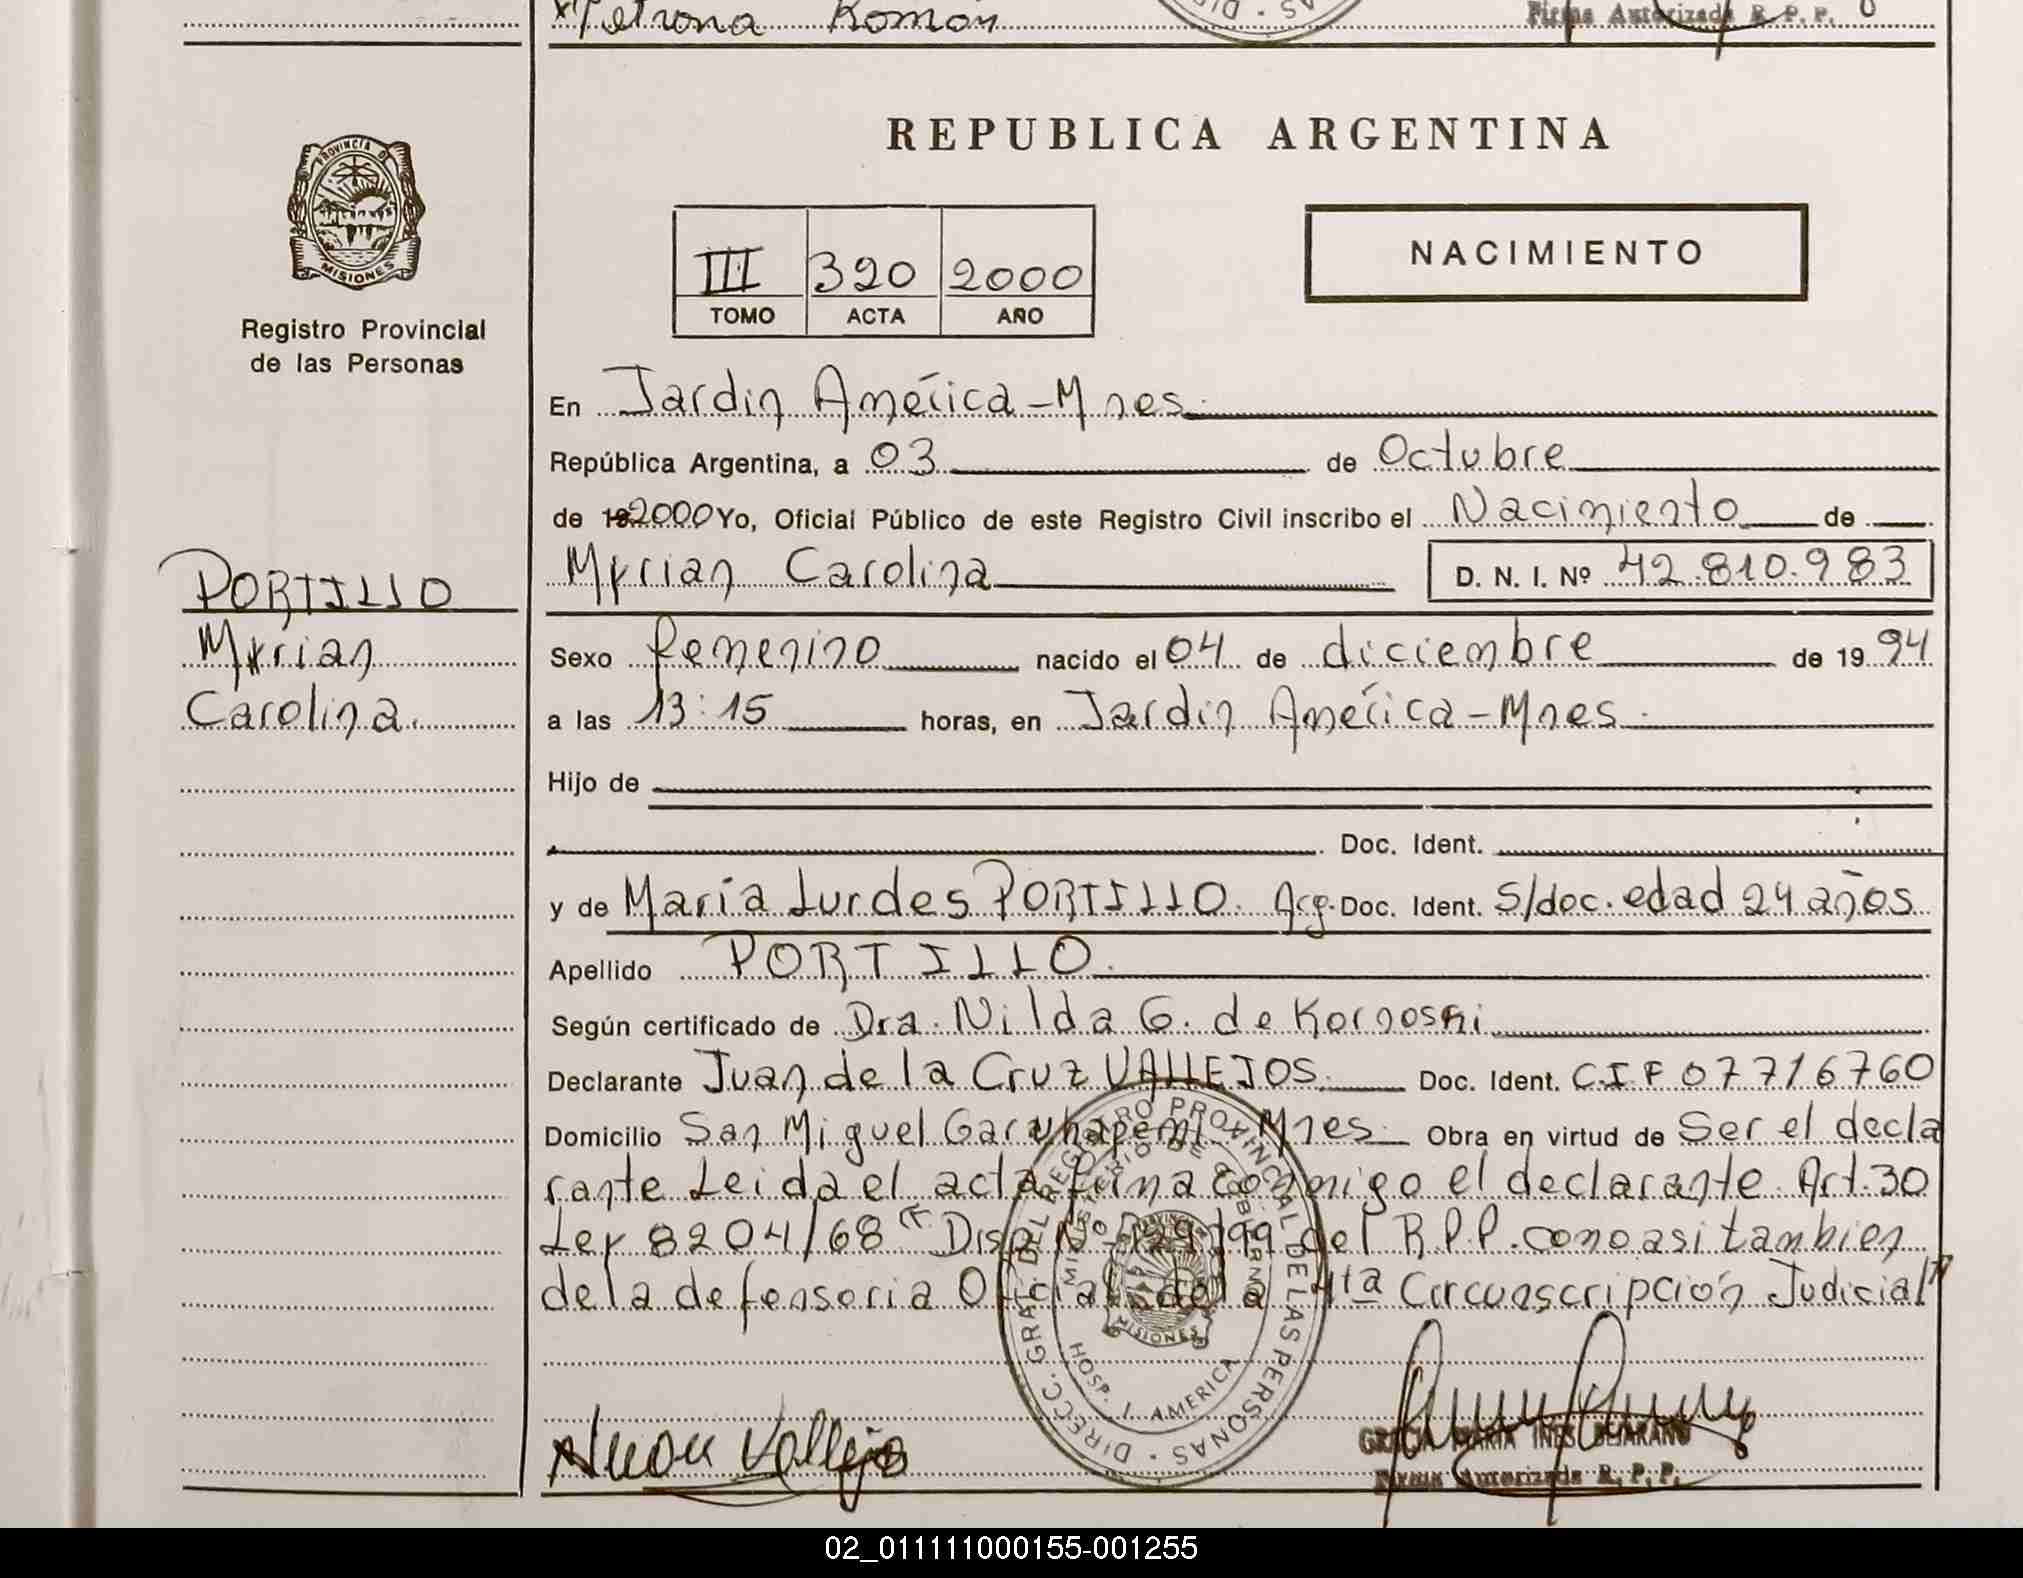 Petrona Román
Firma Autorizada R. P. P.
REPUBLICA ARGENTINA
PROVINCIA D
MISIONES
NACIMIENTO
III 320 2000
TOMO ACTA AÑO
Registro Provincial
de las Personas
En Jardin América-Mnes.
República Argentina, a 03 de Octubre
de 19 2000 Yo, Oficial Público de este Registro Civil inscribo el Nacimiento de
Myrian Carolina D. N. I. Nº 42.810.983
PORTILLO
Myrian
Carolina.
Sexo femenino nacido el 04 de diciembre de 19 94
a las 13:15 horas, en Jardin América-Mnes.
Hijo de
Doc. Ident.
y de María Lurdes PORTILLO. Arg. Doc. Ident. S/doc. edad 24 años
Apellido PORTILLO.
Según certificado de Dra. Nilda G. de Kornoski
Declarante Juan de la Cruz VALLEJOS. Doc. Ident. C.I.F 07716760
Domicilio San Miguel Garuhapemi- Mnes. Obra en virtud de Ser el decla
rante Leida el acta firma conmigo el declarante. Art. 30
Ley 8204/68 " Disp. Nº 129/99 del R.P.P. como asi tambien
de la defensoria Oficial de la 4ta Circunscripción Judicial"
DIRECC. GRAL. DEL REGISTRO PROVINCIAL DE LAS PERSONAS
MINISTERIO DE GOBIERNO
MISIONES
HOSP. J. AMERICA
Juan Vallejo
GRACIA MARIA INES BEJARANO
Firma Autorizada R. P. P.
02_011111000155-001255